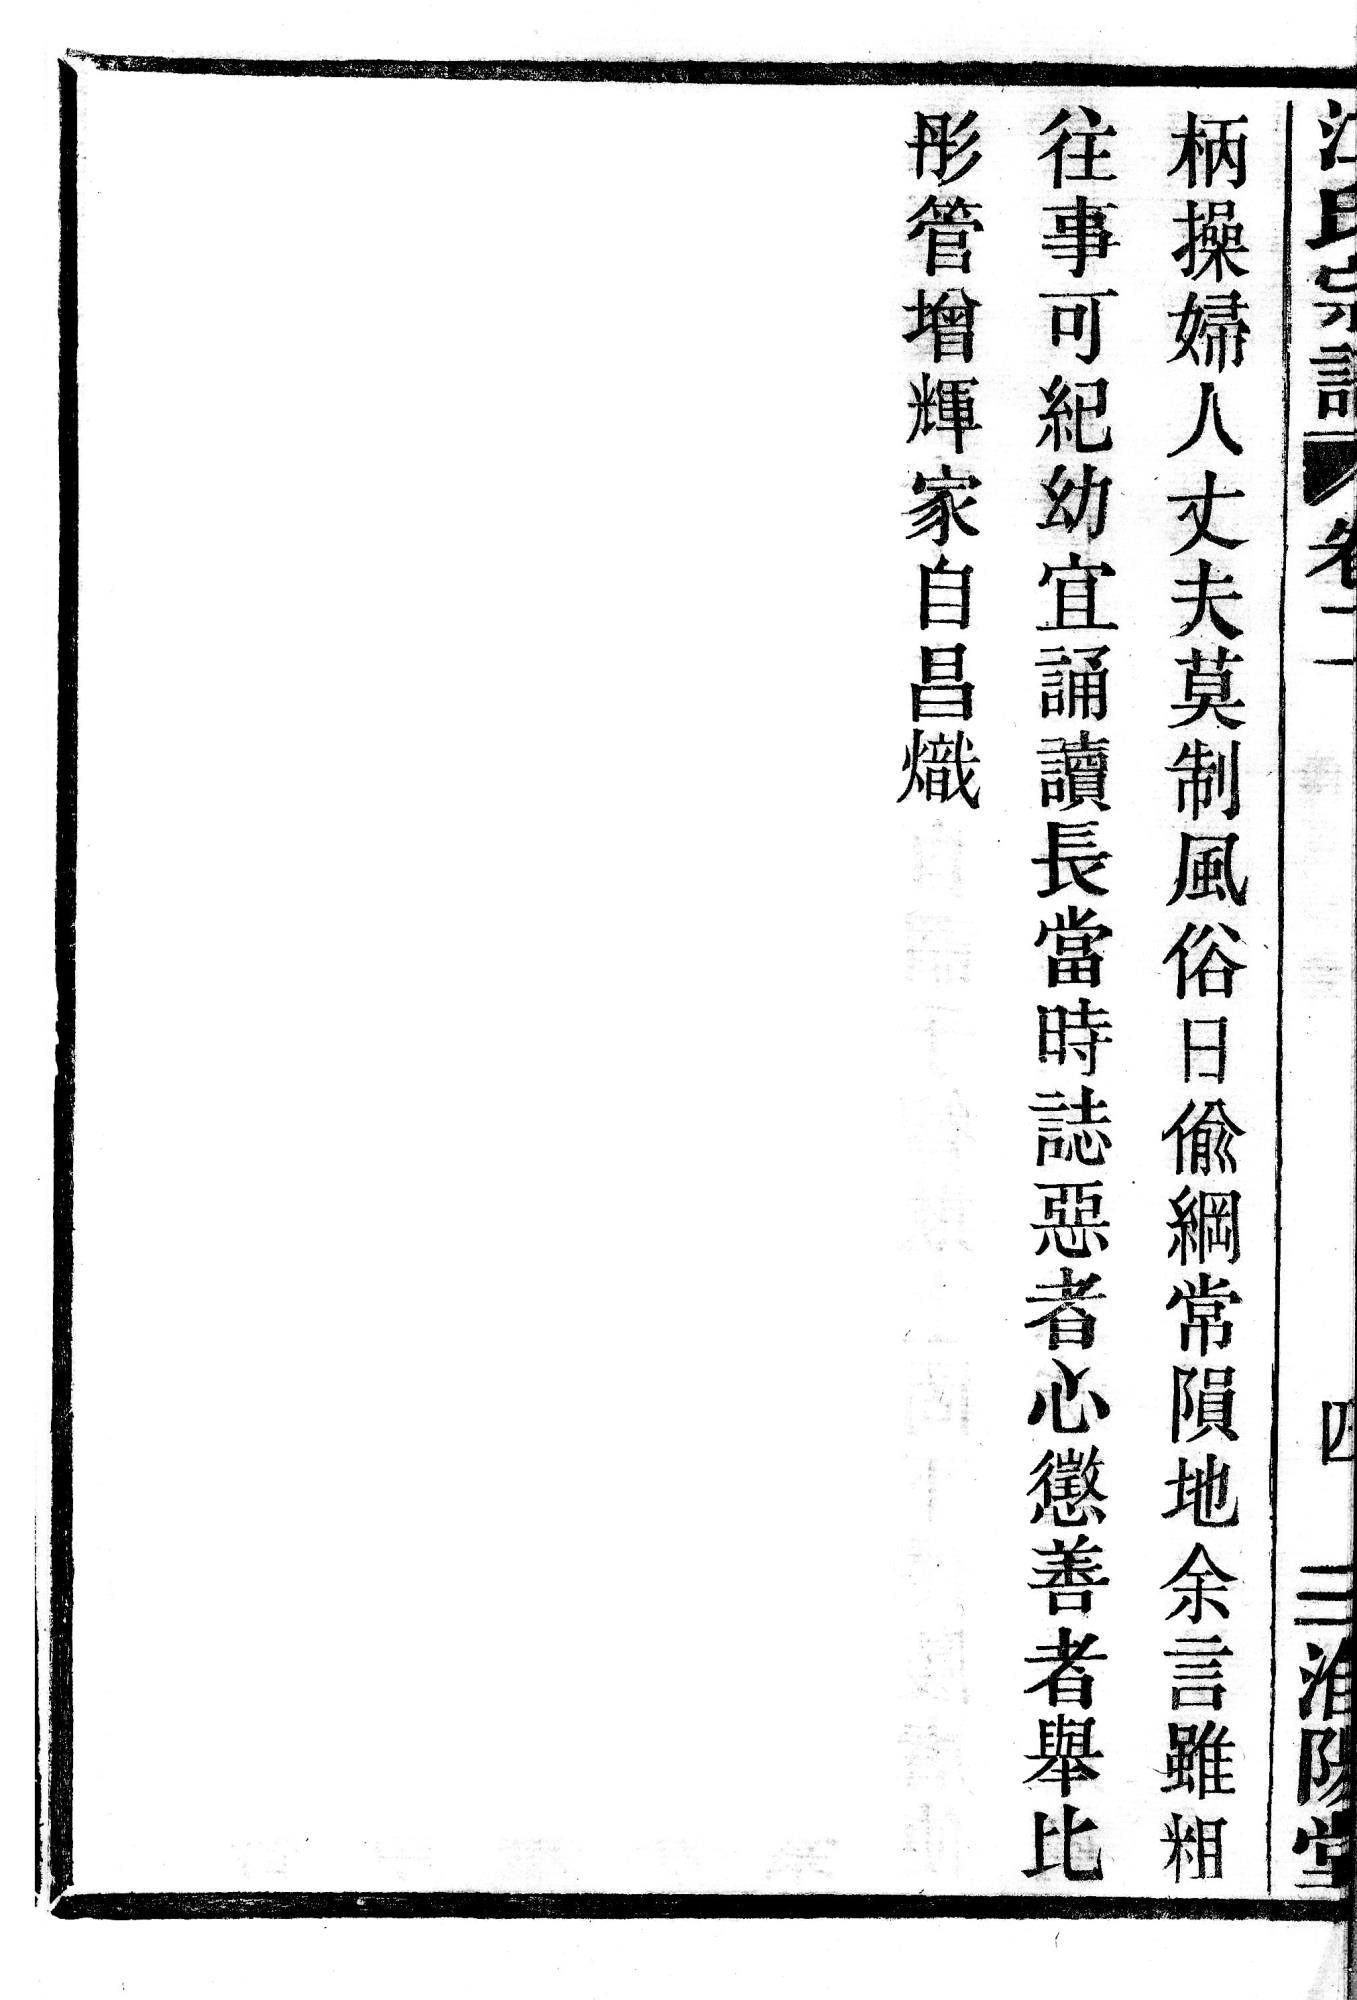 江氏宗譜 卷二 四 三 淮陽堂
柄操婦人丈夫莫制風俗日偷綱常隕地余言雖粗
往事可紀幼宜誦讀長當時誌惡者心懲善者舉比
彤管增輝家自昌熾